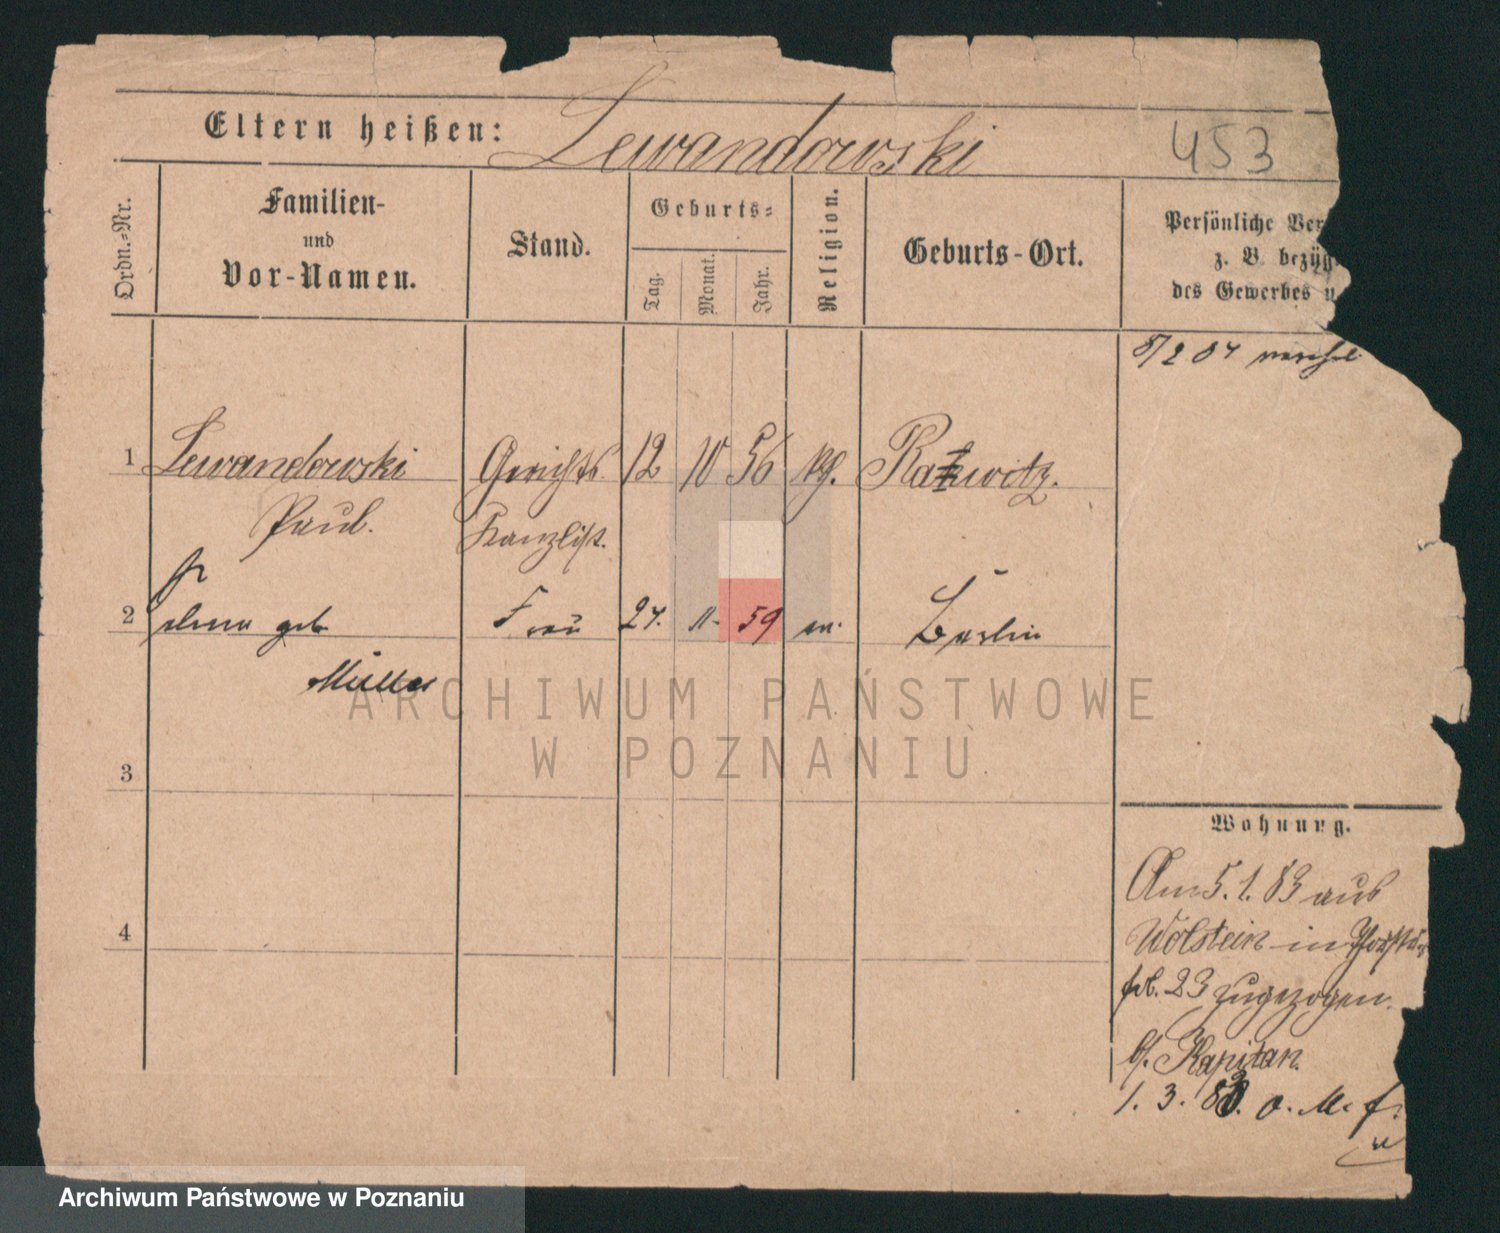 Eltern heißen: Lewandowski
453
Ordn.=Nr.
Familien-
und
Vor-Namen.
Stand.
Geburts=
Tag.
Monat.
Jahr.
Religion.
Geburts-Ort.
Persönliche Ver
z. B. bezüg
des Gewerbes u
8/2 84
1 Lewandowski Gerichts 12 10 56 kg. Rakwitz.
Paul. Kanzlist.
2 geb Frau 24. 11. 59 ev. Berlin
Müller
3
4
Wohnung.
Am 5. 1. 83 aus
Wolstein in
23 zugezogen.
b/. Kapitan.
1. 3. 83. o. M. f.
ARCHIWUM PAŃSTWOWE
W POZNANIU
Archiwum Państwowe w Poznaniu